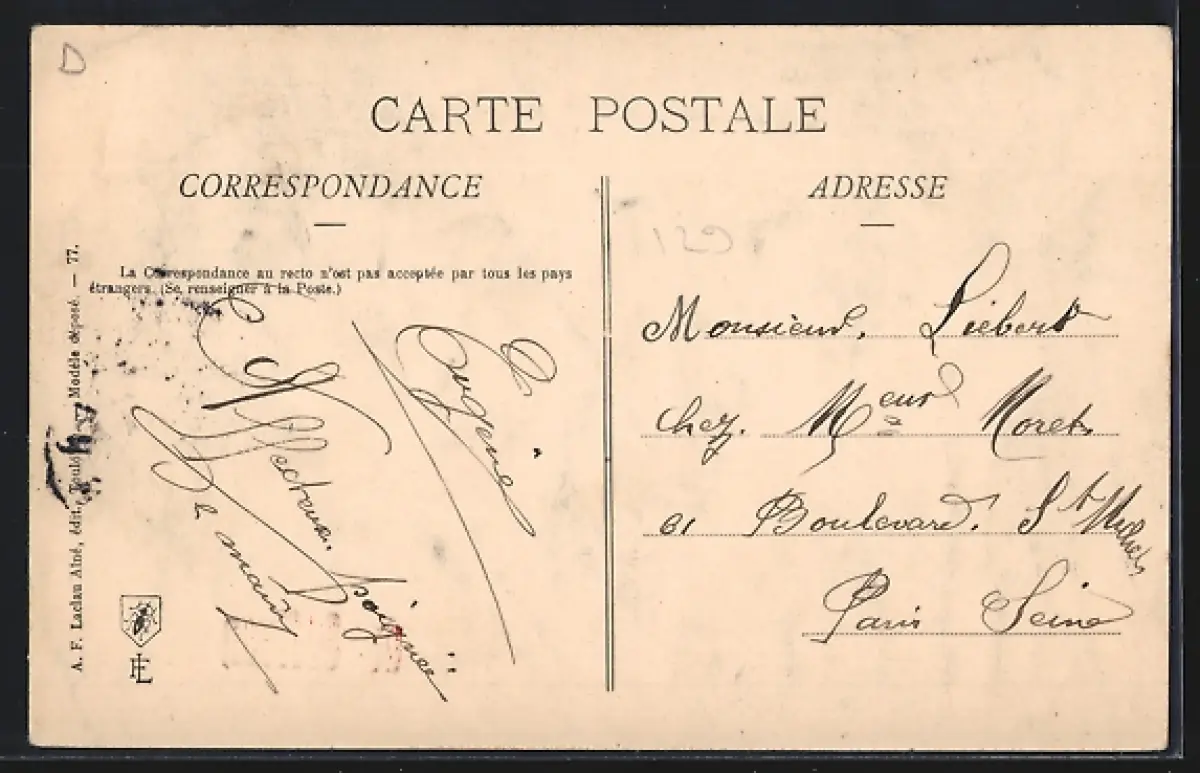 D
CARTE POSTALE
CORRESPONDANCE
La Correspondance au recto n'est pas acceptée par tous les pays
étrangers. (Se renseigner à la Poste.)
A. F. Laclau Aîné, édit., Toulouse. Modèle déposé. — 77.
poignée
Eugène
ADRESSE
129
Monsieur. Liebert
chez. Meur Moret
61 Boulevard. St Michel
Paris Seine